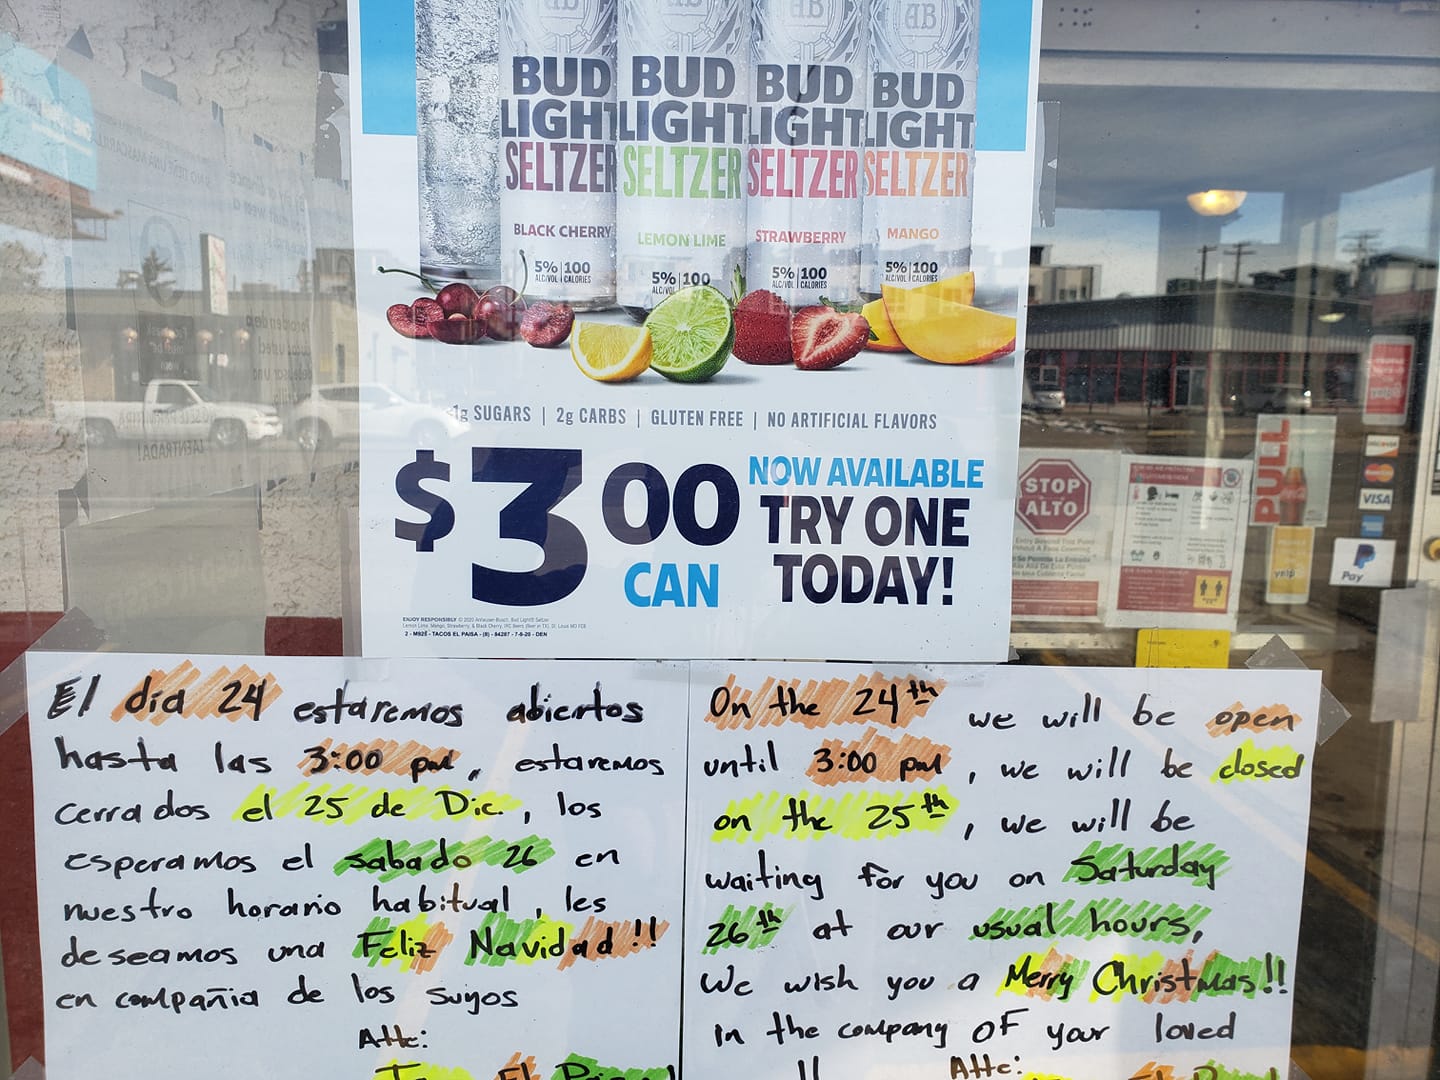 BUD LIGHT SELTZER
BLACK CHERRY
5% ALC/VOL | 100 CALORIES
BUD LIGHT SELTZER
LEMON LIME
5% ALC/VOL | 100
BUD LIGHT SELTZER
STRAWBERRY
5% ALC/VOL | 100 CALORIES
BUD LIGHT SELTZER
MANGO
5% ALC/VOL | 100 CALORIES
1g SUGARS | 2g CARBS | GLUTEN FREE | NO ARTIFICIAL FLAVORS
$3.00 CAN
NOW AVAILABLE
TRY ONE
TODAY!
ENJOY RESPONSIBLY © 2020 Anheuser-Busch, Bud Light® Seltzer
2 - M925 - TACOS EL PAISA - (8) - 84287 - 7-8-20 - DEN
STOP
ALTO
PULL
yelp
DISCOVER
MasterCard
VISA
PayPal
El día 24 estaremos abiertos
hasta las 3:00 pm, estaremos
cerrados el 25 de Dic., los
esperamos el sabado 26 en
nuestro horario habitual, les
deseamos una Feliz Navidad!!
en compañia de los suyos
Atte:
On the 24th we will be open
until 3:00 pm, we will be closed
on the 25th, we will be
waiting for you on Saturday
26th at our usual hours,
We wish you a Merry Christmas!!
in the company of your loved
Atte: